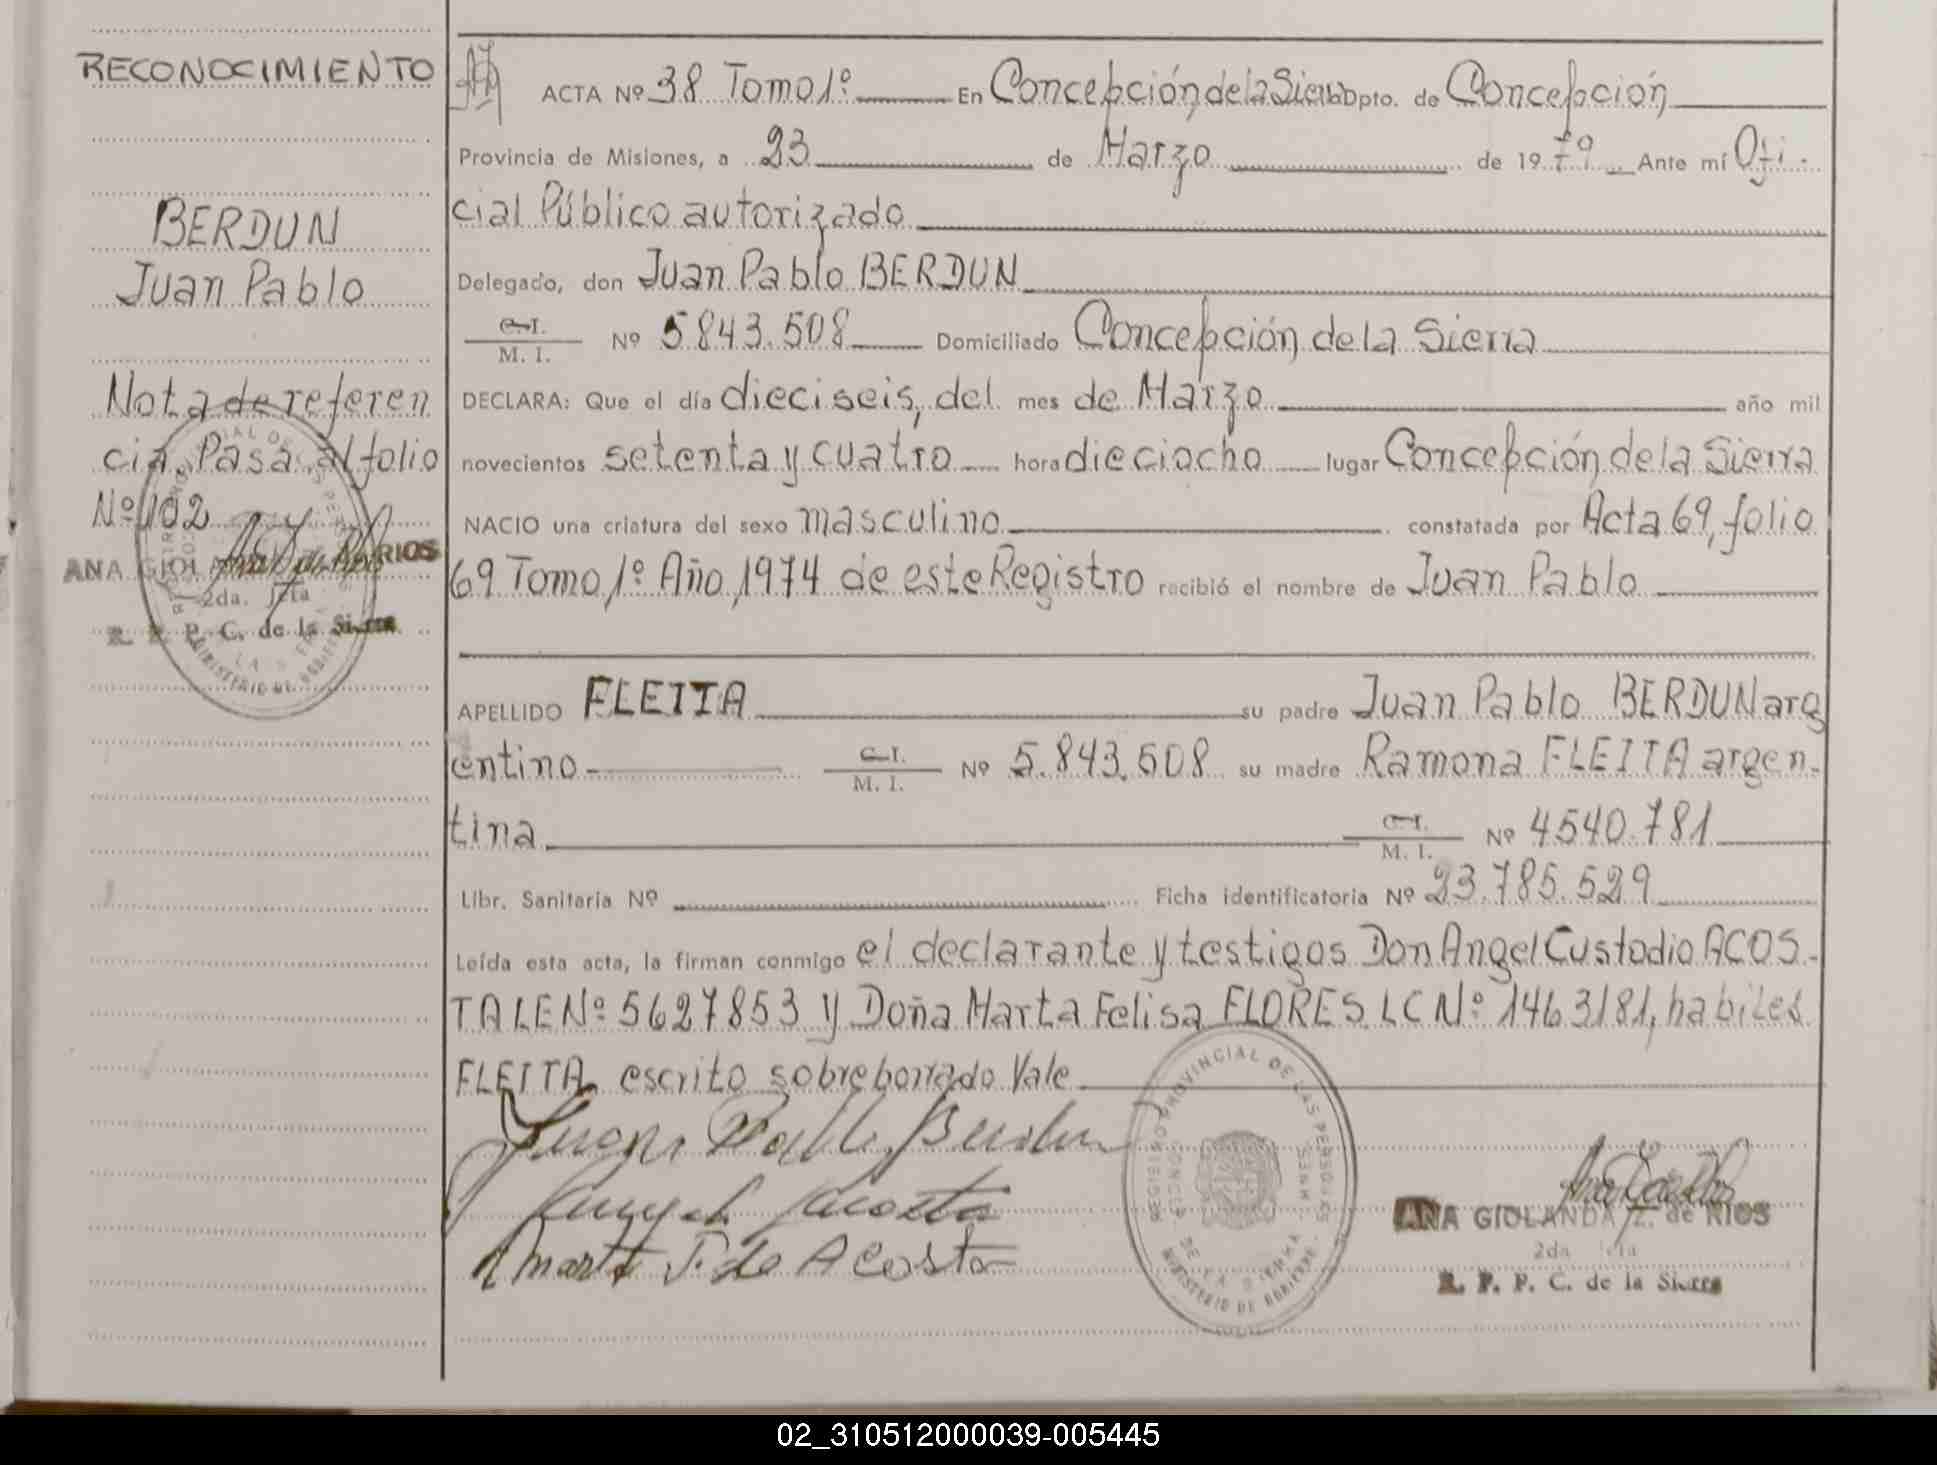 RECONOCIMIENTO
BERDUN
Juan Pablo
Nota de referen
cia. Pasa al folio
Nº 102
ANA GIOL RIOS
2da. Jefa
R. P. P. C. de la Sierra
ACTA Nº 38 Tomo 1º En Concepción de la Sierra Dpto. de Concepción
Provincia de Misiones, a 23 de Marzo de 1979 Ante mí Ofi-
cial Público autorizado
Delegado, don Juan Pablo BERDUN
C.I.
M. I. Nº 5.843.508 Domiciliado Concepción de la Sierra
DECLARA: Que el día dieciseis, del mes de Marzo año mil
novecientos setenta y cuatro hora dieciocho lugar Concepción de la Sierra
NACIO una criatura del sexo masculino constatada por Acta 69, folio
69 Tomo 1º Año 1974 de este Registro recibió el nombre de Juan Pablo
APELLIDO FLEITA su padre Juan Pablo BERDUN arg
entino C.I. M. I. Nº 5.843.508 su madre Ramona FLEITA argen-
tina C.I. M. I. Nº 4540.781
Libr. Sanitaria Nº Ficha identificatoria Nº 23.785.529
Leída esta acta, la firman conmigo el declarante y testigos Don Angel Custodio ACOS-
TA LE Nº 5627853 y Doña Marta Felisa FLORES LC Nº 1463181, habiles
FLEITA escrito sobreborrado Vale
Juan Pablo Berdun
Angel Acosta
Marta F. de Acosta
REGISTRO PROVINCIAL DE LAS PERSONAS
MINISTERIO DE GOBIERNO
ANA GIOLANDA Z. de RIOS
2da Jefa
R. P. P. C. de la Sierra
02_310512000039-005445